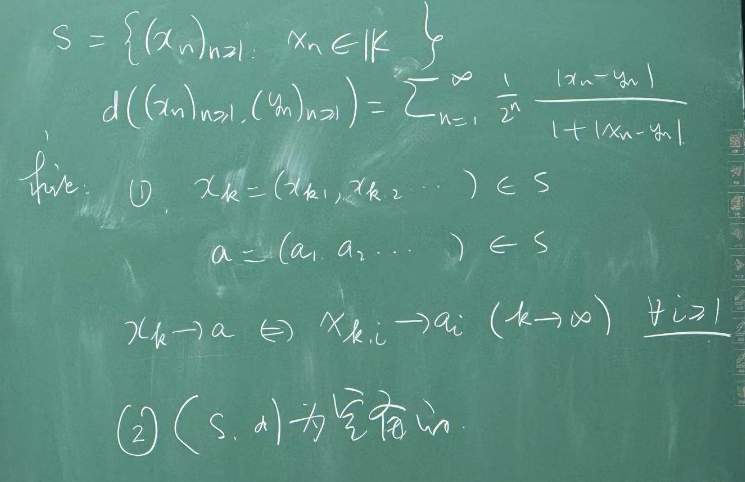 S = {(xₙ)ₙ≥₁. xₙ ∈ 𝕂}
d((xₙ)ₙ≥₁, (yₙ)ₙ≥₁) = ∑ₙ₌₁^∞ 1/2ⁿ |xₙ-yₙ|/(1+|xₙ-yₙ|)
① x_k = (x_{k,1}, x_{k,2} ⋯ ) ∈ S
a = (a₁, a₂ ⋯ ) ∈ S
x_k → a ⇔ x_{k,i} → a_i (k→∞) ∀i≥1
② (S, d) 为完备的.